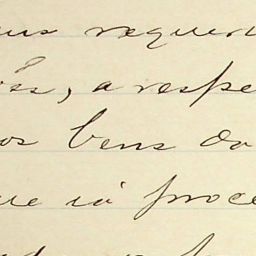 us requer
ôs, a respe
os bens do
ue iá proce